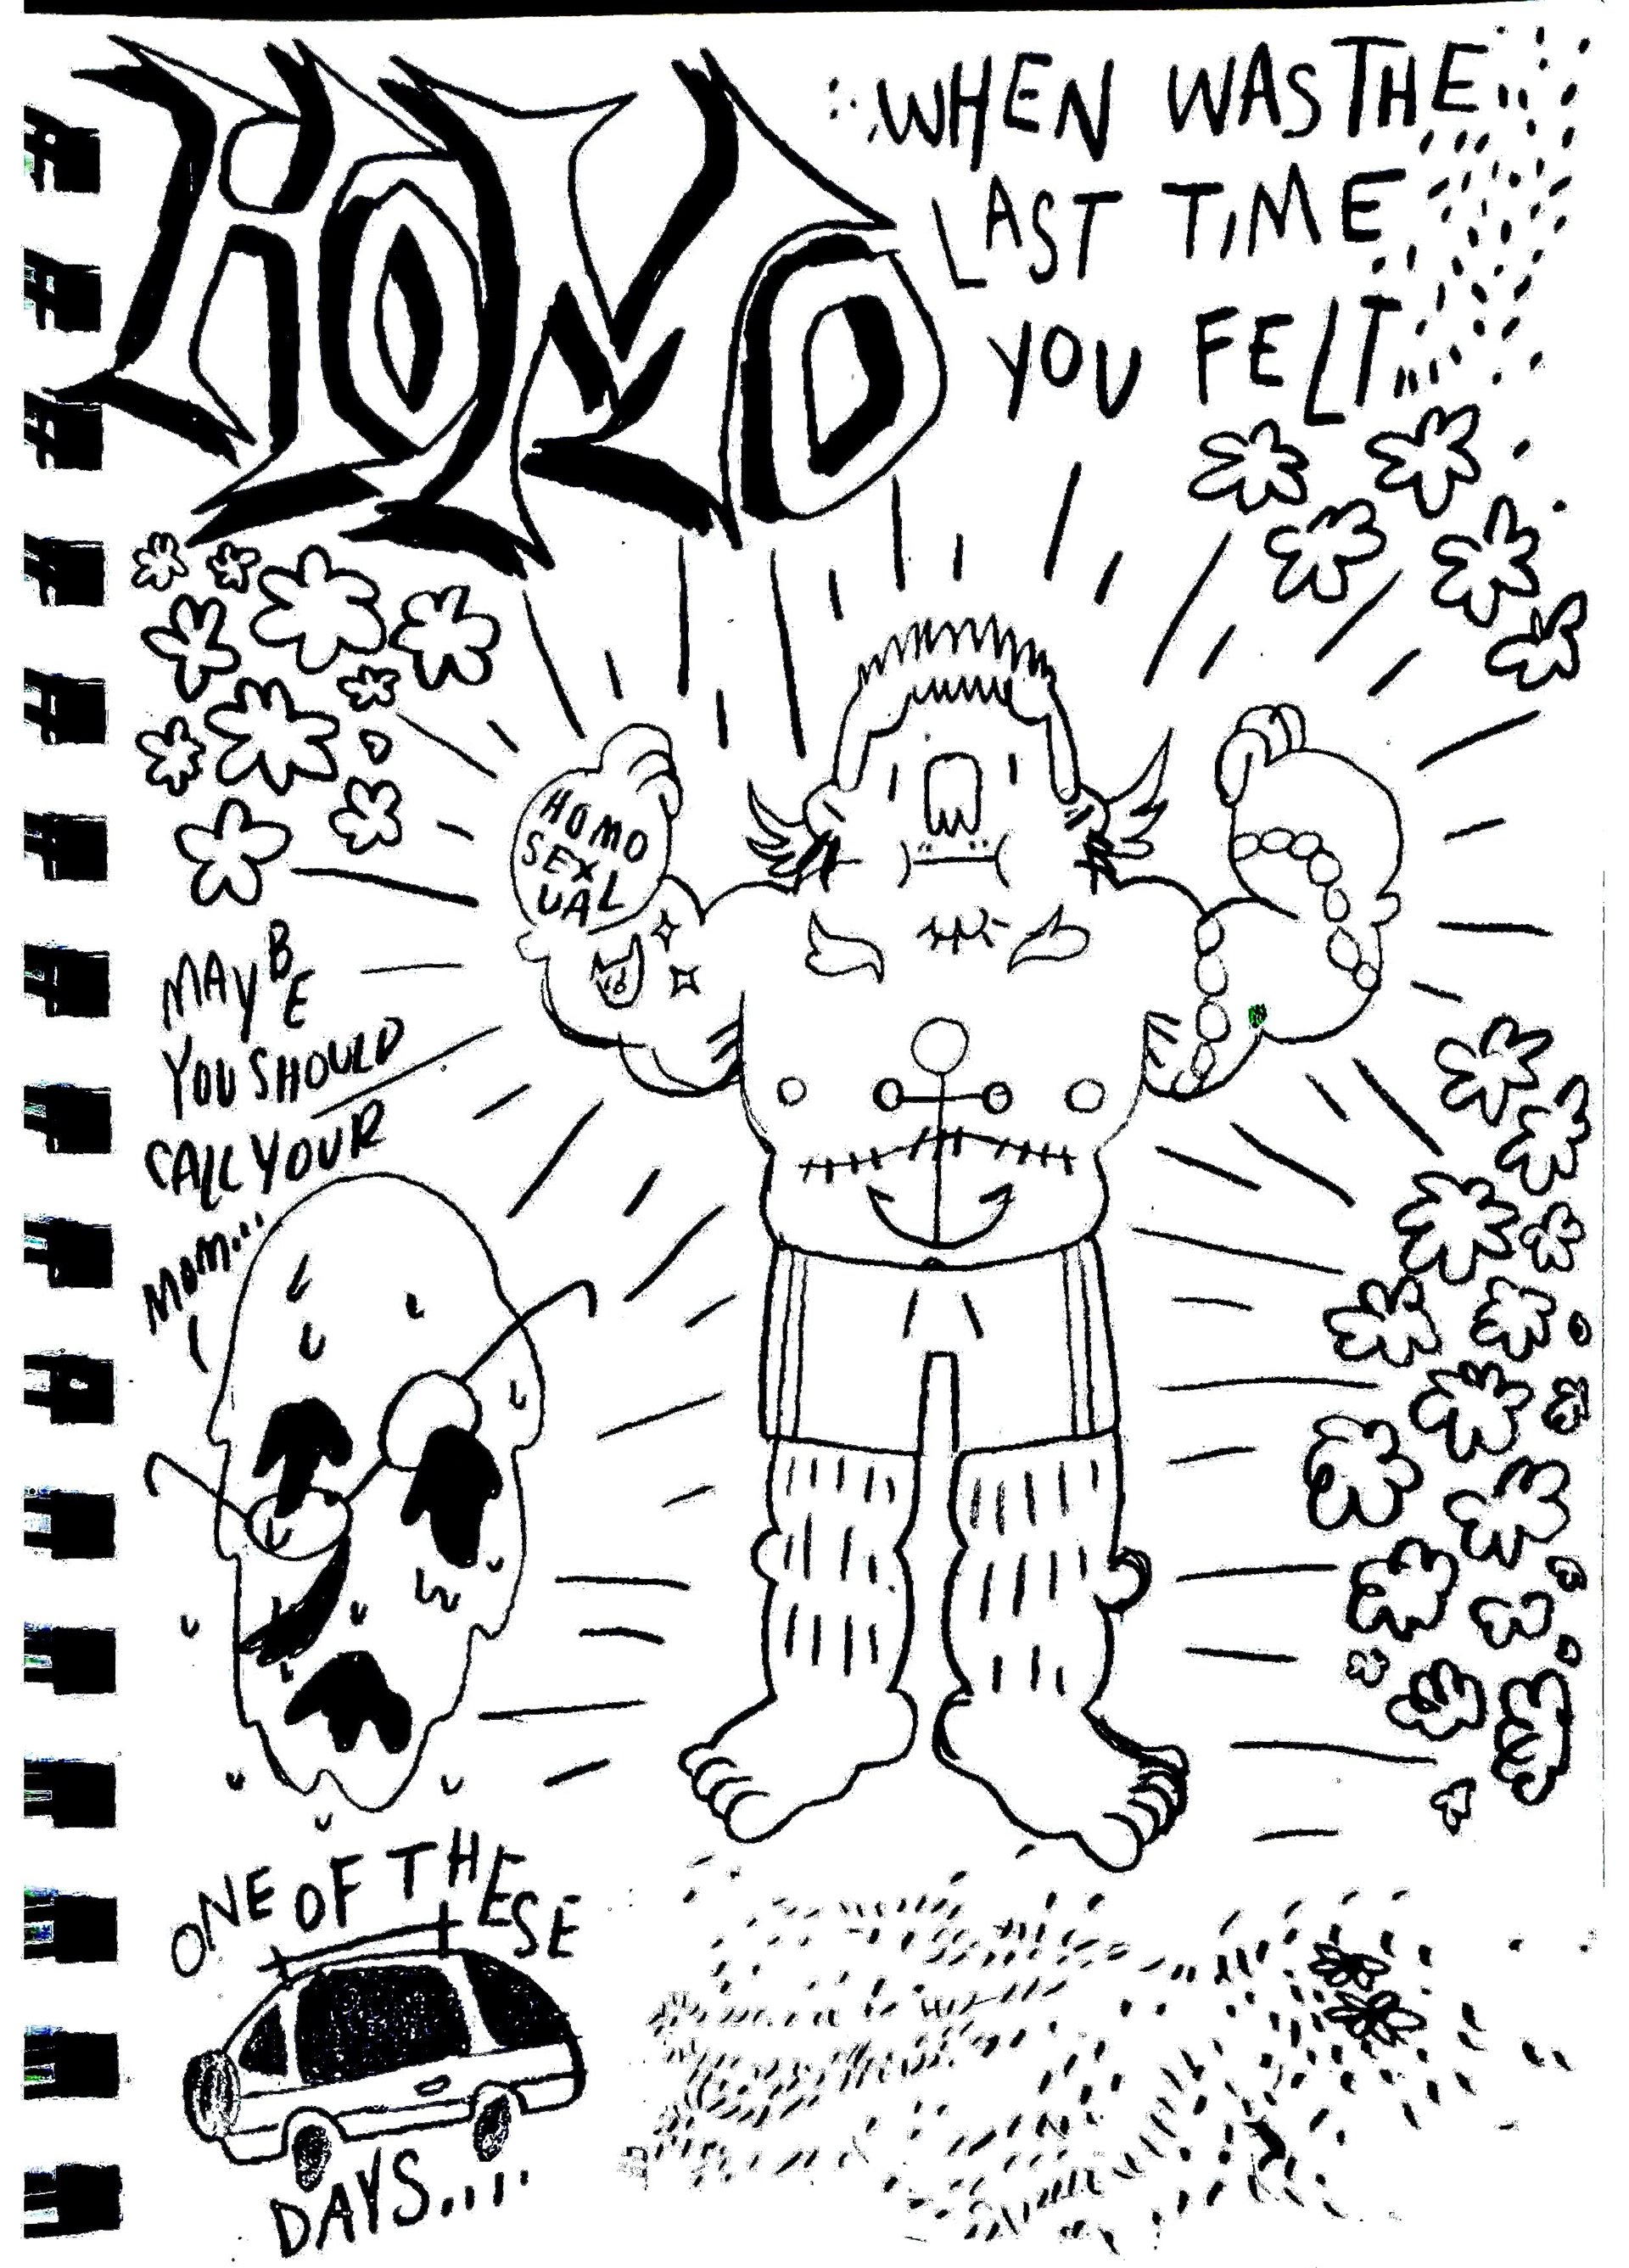 WHEN WAS THE
LAST TIME
YOU FELT
HOMO
SEX
UAL
MAYBE
YOU SHOULD
CALL YOUR
MOM...
ONE OF THESE
DAYS....